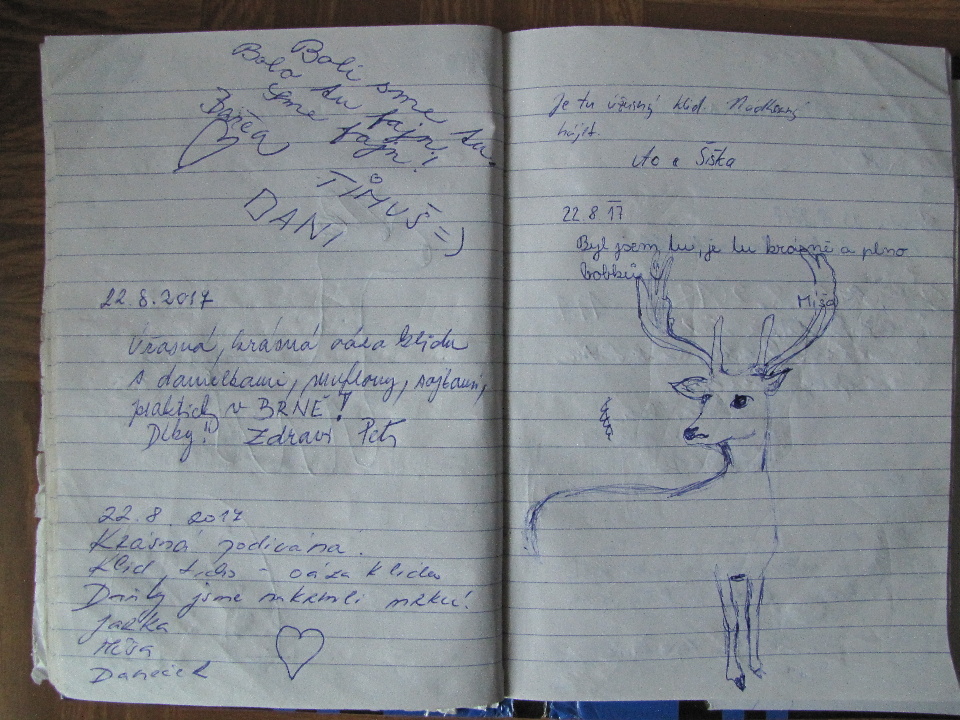 Boli sme tu.
Bolo tu fajn!
Sme fajn!
TIMUŠ =)
DANI
22.8.2017
Úžasná, krásná oáza klidu
s daňelkami, muflony, sojkami,
prakticky v BRNĚ!
Díky! Zdraví Petr
22.8.2017
Krásná podívaná.
Klid ticho - oáza klidu
Daňky jsme nakrmili mrkví!
Jarka
Míša
Daneček
Je tu úžasný klid. Nádherný
hájek.
a Šiška
22.8.17
Byl jsem tu, je tu krásně a plno
bobků
Míša